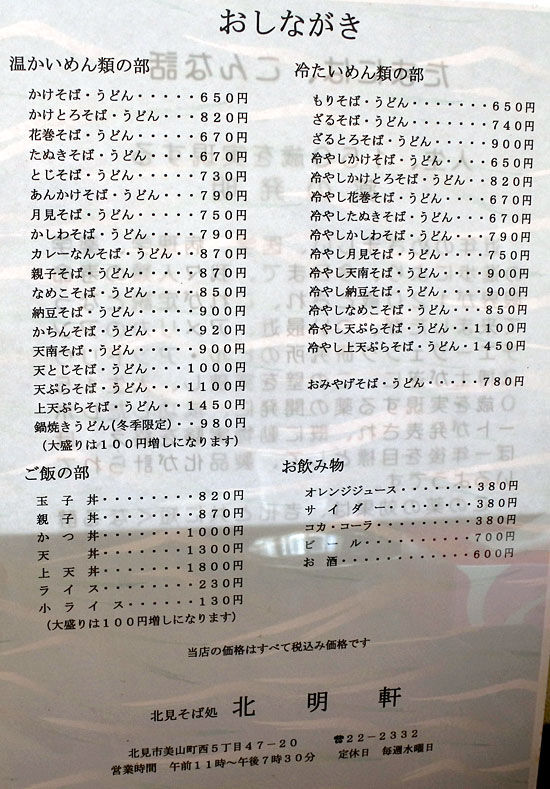 おしながき
温かいめん類の部
かけそば・うどん・・・・・650円
かけとろそば・うどん・・・・820円
花巻そば・うどん・・・・・670円
たぬきそば・うどん・・・・670円
とじそば・うどん・・・・・730円
あんかけそば・うどん・・・・790円
月見そば・うどん・・・・・750円
かしわそば・うどん・・・・790円
カレーなんそば・うどん・・・870円
親子そば・うどん・・・・・870円
なめこそば・うどん・・・・850円
納豆そば・うどん・・・・・900円
かちんそば・うどん・・・・920円
天南そば・うどん・・・・・900円
天とじそば・うどん・・・・1000円
天ぷらそば・うどん・・・・1100円
上天ぷらそば・うどん・・1450円
鍋焼きうどん(冬季限定)・・980円
(大盛りは100円増しになります)
ご飯の部
玉子丼・・・・・・・・820円
親子丼・・・・・・・・870円
かつ丼・・・・・・・・1000円
天丼・・・・・・・・1300円
上天丼・・・・・・・・1800円
ライス・・・・・・・・230円
小ライス・・・・・・・130円
(大盛りは100円増しになります)
冷たいめん類の部
もりそば・うどん・・・・・・・650円
ざるそば・うどん・・・・・・・740円
ざるとろそば・うどん・・・・・900円
冷やしかけそば・うどん・・・650円
冷やしかけとろそば・うどん・・820円
冷やし花巻そば・うどん・・・・670円
冷やしたぬきそば・うどん・・・670円
冷やしかしわそば・うどん・・・790円
冷やし月見そば・うどん・・・・750円
冷やし天南そば・うどん・・・900円
冷やし納豆そば・うどん・・・・900円
冷やしなめこそば・うどん・・・850円
冷やし天ぷらそば・うどん・・1100円
冷やし上天ぷらそば・うどん・1450円
おみやげそば・うどん・・・・・780円
お飲み物
オレンジジュース・・・・・・・380円
サイダー・・・・・・・・380円
コカ・コーラ・・・・・・・・380円
ビール・・・・・・・・・700円
お酒・・・・・・・・・・600円
当店の価格はすべて税込み価格です
北見そば処 北明軒
北見市美山町西5丁目47-20 ☎22-2332
営業時間 午前11時~午後7時30分 定休日 毎週水曜日